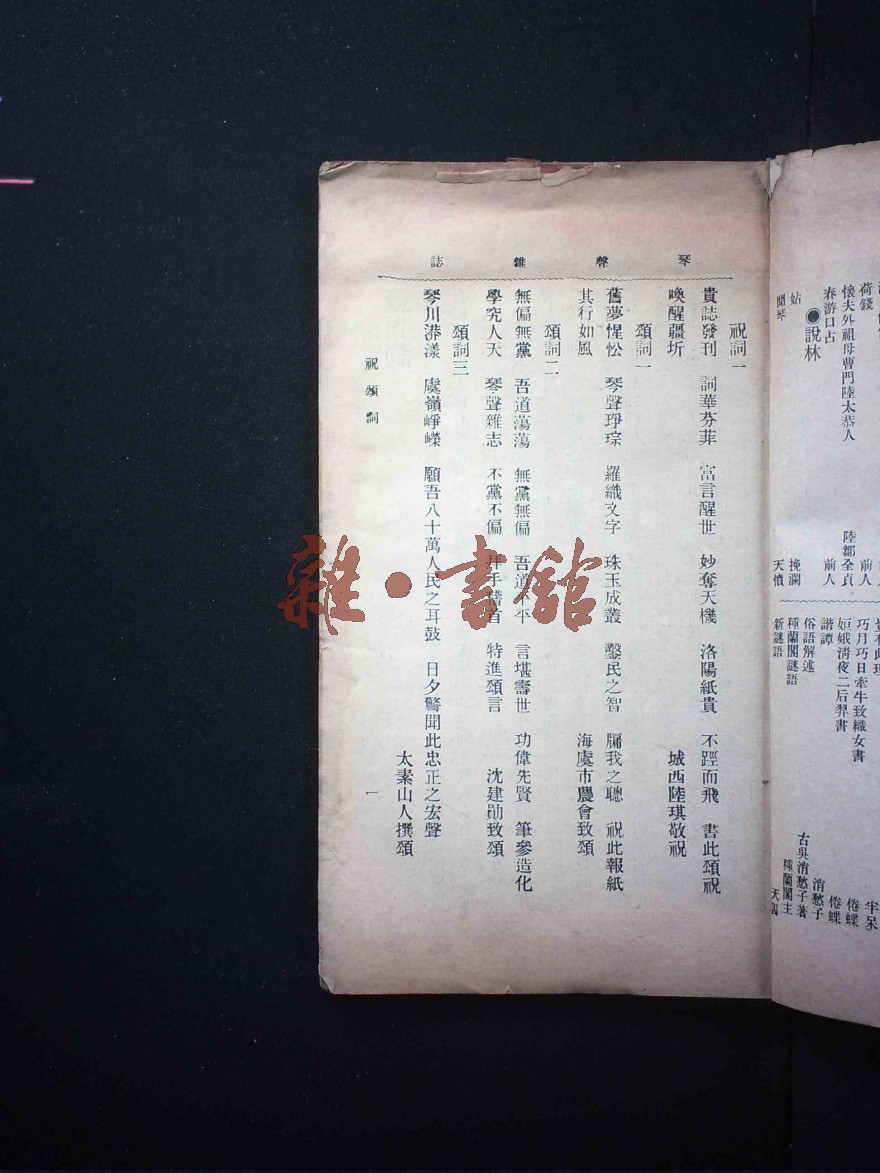 琴聲雜誌
祝詞一
貴誌發刊　詞華芬菲　富言醒世　妙奪天機　洛陽紙貴　不踁而飛　書此頌祝
喚醒疆圻　城西陸琪敬祝
頌詞一
舊夢惺忪　琴聲琤琮　羅織文字　珠玉成叢　鑿民之智　牖我之聰　祝此報紙
其行如風　海虞市農會致頌
頌詞二
無偏無黨　吾道蕩蕩　無黨無偏　吾道平平　言堪壽世　功偉先賢　筆參造化
學究人天　琴聲雜志　不黨不偏　拜手　首　特進頌言　沈建勛致頌
頌詞三
琴川漭漾　虞嶺崢嶸　願吾八十萬人民之耳鼓　日夕警聞此忠正之宏聲
太素山人撰頌
祝頌詞
一
荷錢　前人
懷夫外祖母曹門陸太恭人　陸鄒全貞
春游口占　前人
●說林
姑　挽瀾
聞琴　天憤
巧月巧日牽牛致織女書　倦蝶
姮娥清夜二后羿書　倦蝶
諧譚　消愁子
俗語解述　古吳消愁子著
種蘭閣謎語　種蘭閣主
新謎語
半呆
雜·書館